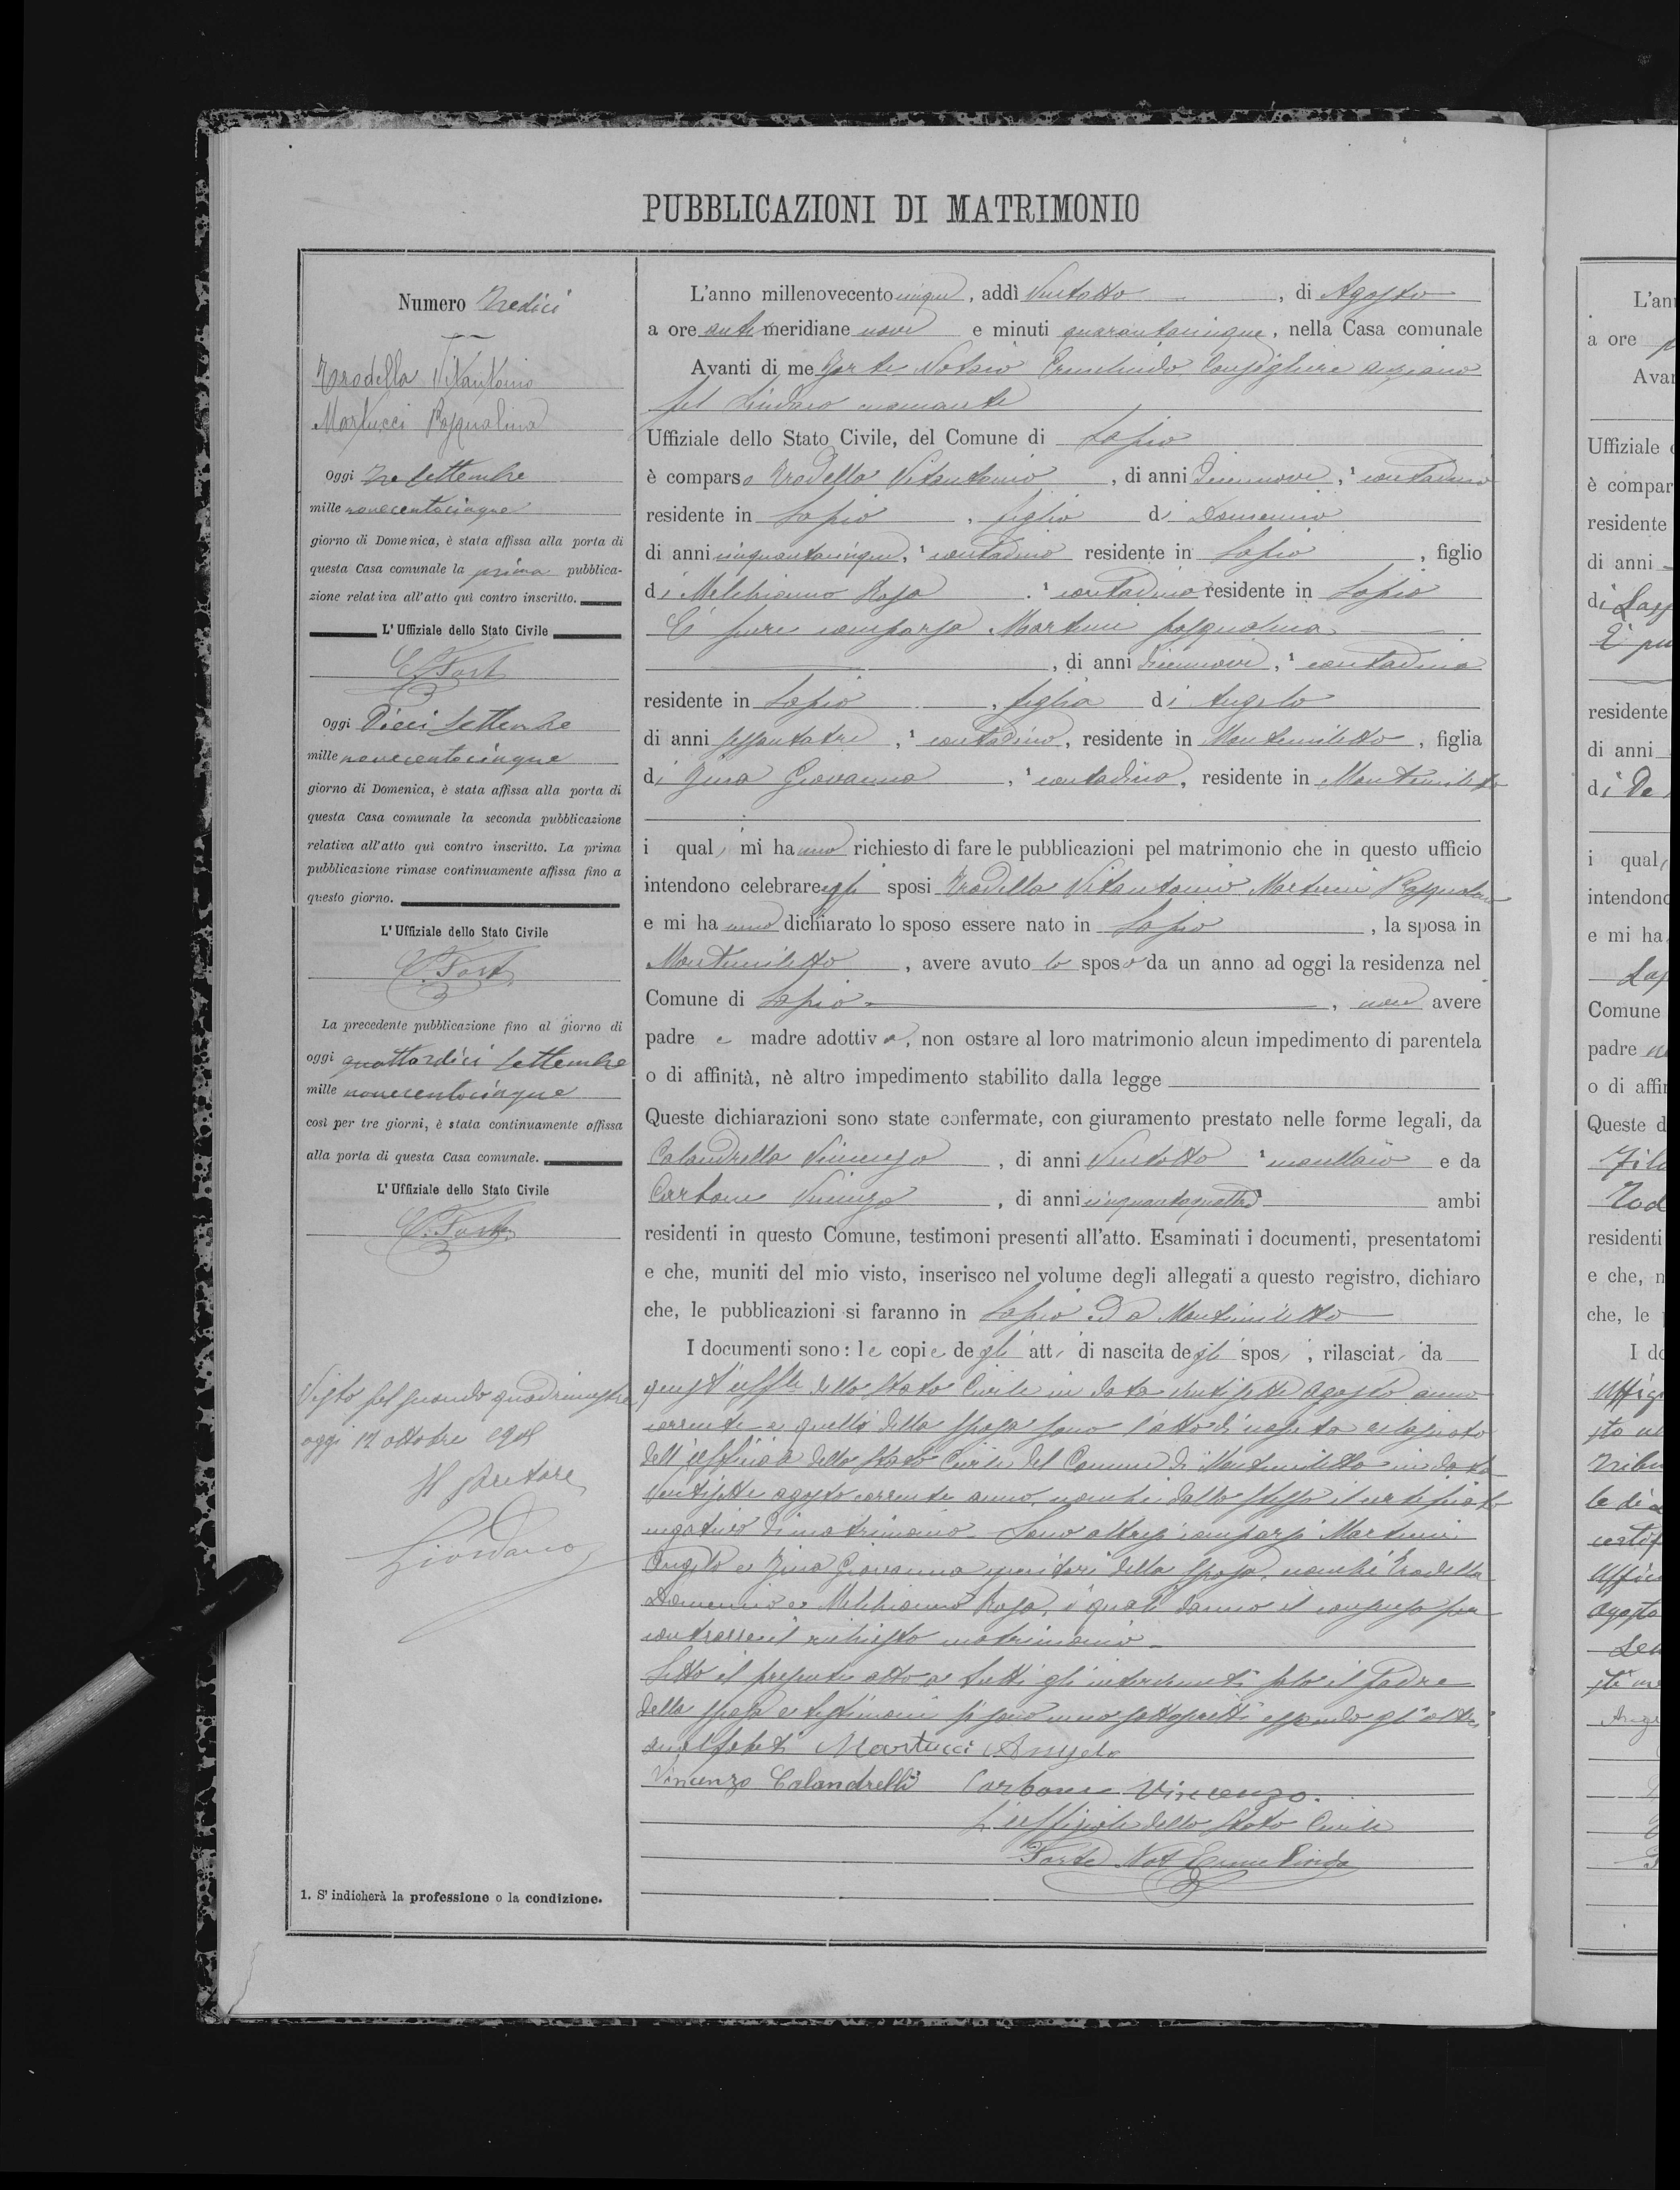 PUBBLICAZIONI DI MATRIMONIO
Numero Tredici
Trodella Vitantonio
Martucci Pasqualina
Oggi Tre Settembre
mille novecentocinque
giorno di Domenica, è stata affissa alla porta di
questa Casa comunale la prima pubblica-
zione relativa all'atto quì contro inscritto.
L'Uffiziale dello Stato Civile
E. Forte
Oggi Dieci Settembre
mille novecentocinque
giorno di Domenica, è stata affissa alla porta di
questa Casa comunale la seconda pubblicazione
relativa all'atto quì contro inscritto. La prima
pubblicazione rimase continuamente affissa fino a
questo giorno.
L'Uffiziale dello Stato Civile
E. Forte
La precedente pubblicazione fino al giorno di
oggi quattordici Settembre
mille novecentocinque
così per tre giorni, è stata continuamente affissa
alla porta di questa Casa comunale.
L'Uffiziale dello Stato Civile
E. Forte
Visto pel secondo quadrimestre
oggi 12 ottobre 1905
Il Pretore
Giordano
1. S'indicherà la professione o la condizione.
L'anno millenovecento cinque, addì Ventotto, di Agosto
a ore antemeridiane nove e minuti quarantacinque, nella Casa comunale
Avanti di me Forte Notaio Ermelindo Consigliere anziano
pel Sindaco mancante
Uffiziale dello Stato Civile, del Comune di Lapio
è comparso Trodella Vitantonio, di anni diecinnove, ¹ contadino
residente in Lapio, figlio di Domenico
di anni cinquantacinque, ¹ contadino residente in Lapio, figlio
di Melchionno Rosa. ¹ contadina residente in Lapio
È pure comparsa Martucci Pasqualina
, di anni diecinnove, ¹ contadina
residente in Lapio, figlia di Angelo
di anni sessantatre, ¹ contadino, residente in Montemiletto, figlia
di Zina Giovanna, ¹ contadina, residente in Montemiletto
i quali mi hanno richiesto di fare le pubblicazioni pel matrimonio che in questo ufficio
intendono celebrare gli sposi Trodella Vitantonio Martucci Pasqualina
e mi hanno dichiarato lo sposo essere nato in Lapio, la sposa in
Montemiletto, avere avuto lo sposo da un anno ad oggi la residenza nel
Comune di Lapio, non avere
padre e madre adottiva, non ostare al loro matrimonio alcun impedimento di parentela
o di affinità, nè altro impedimento stabilito dalla legge
Queste dichiarazioni sono state confermate, con giuramento prestato nelle forme legali, da
Calandrella Vincenzo, di anni Ventotto ¹ e da
Carbone Vincenzo, di anni cinquantaquattro ¹ ambi
residenti in questo Comune, testimoni presenti all'atto. Esaminati i documenti, presentatomi
e che, muniti del mio visto, inserisco nel volume degli allegati a questo registro, dichiaro
che, le pubblicazioni si faranno in Lapio ed a Montemiletto
I documenti sono: le copie degli atti di nascita degli sposi, rilasciati da
quest'uffle dello Stato Civile in data ventisette Agosto anno
corrente e quelli della sposa sono l'atto di nascita rilasciato
dell'Ufficio dello Stato Civile del Comune di Montemiletto in data
Ventisette agosto corrente anno, nonché dallo stesso il certificato
negativo di matrimonio. Sono altresì comparsi Martucci
Angelo e Zina Giovanna genitori della Sposa, nonché Trodella
Domenico e Melchionno Rosa, i quali danno il consenso per
contrarre il richiesto matrimonio.
Letto il presente atto a tutti gli intervenuti solo il Padre
della sposa e testimoni si sono meco sottoscritti essendo gli altri
analfabeti Martucci Angelo
Vincenzo Calandrelli Carbone Vincenzo.
L'uffiziale dello Stato Civile
Forte Not Ermelindo
L'an
a ore
Avan
Uffiziale
è compar
residente
di anni
di Lapp
È pu
residente
di anni
di De
i qual
intendono
e mi ha
Lap
Comune
padre
o di affin
Queste d
residenti
e che, n
che, le
I do